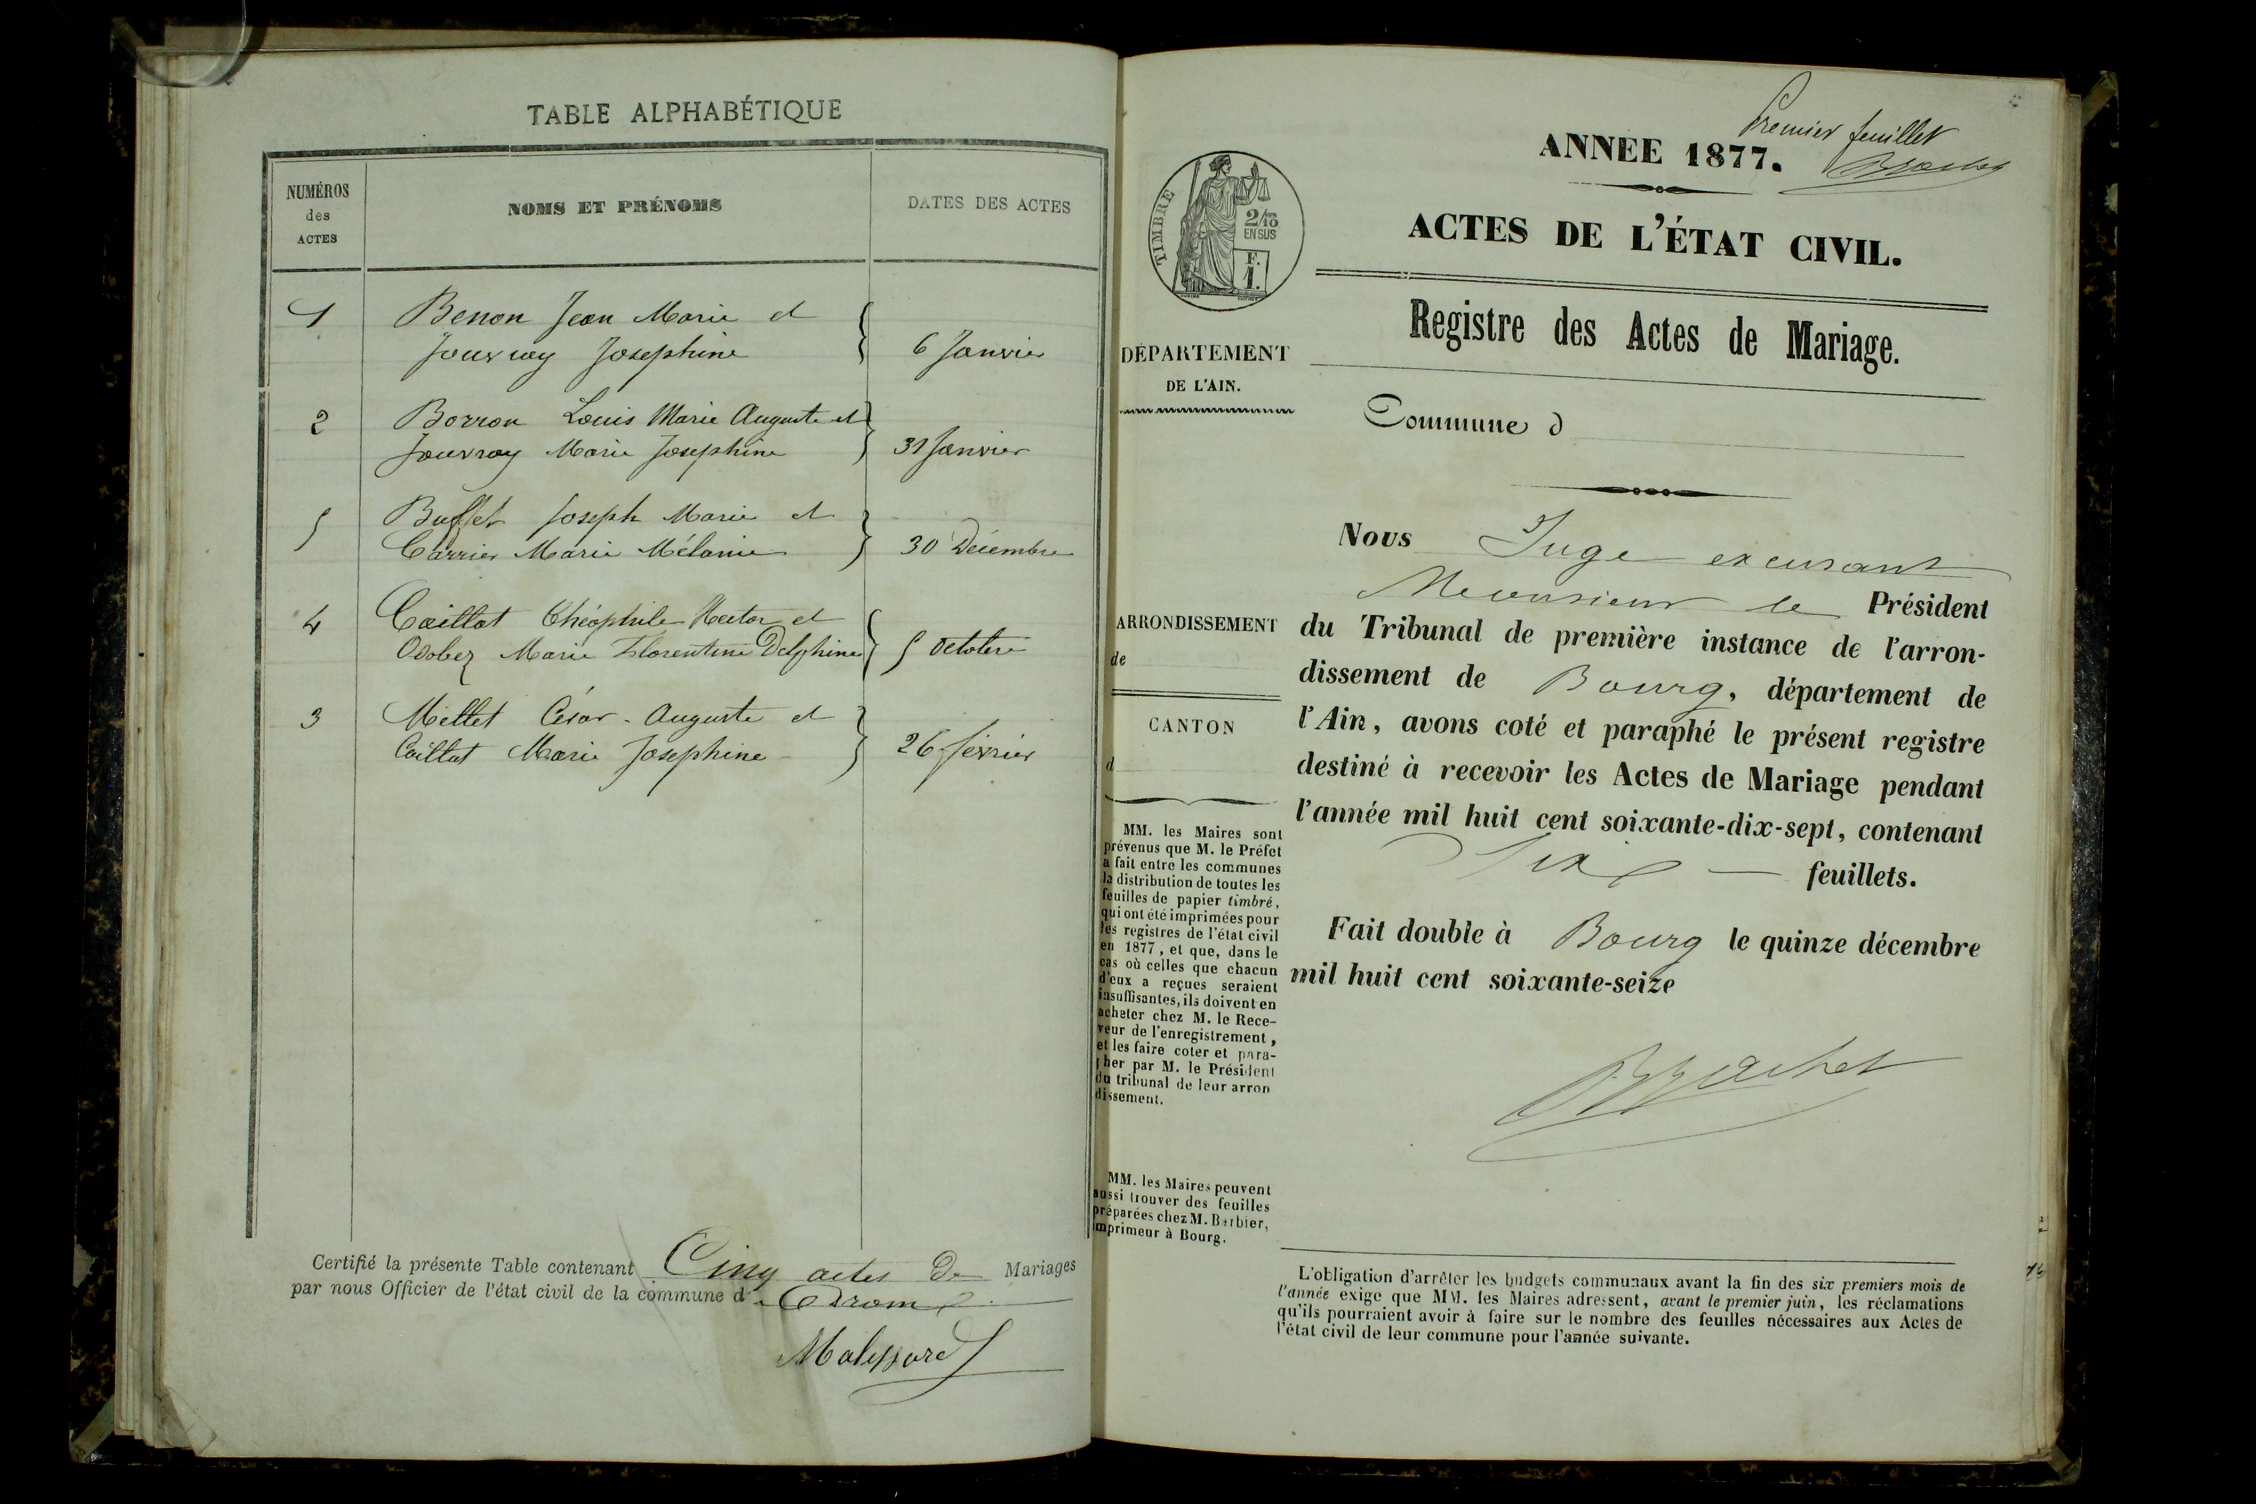 TABLE ALPHABÉTIQUE
NUMÉROS
des
ACTES
NOMS ET PRÉNOMS
DATES DES ACTES
1
Benon Jean Marie et
Jouvray Josephine
6 Janvier
2
Borron Louis Marie Auguste et
Jouvray Marie Josephine
31 Janvier
5
Buffet Joseph Marie et
Carrier Marie Mélanie
30 Décembre
4
Caillat Théophile Hector et
Marie Florentine Delphine
5 Octobre
3
Millet César-Auguste et
Caillat Marie Josephine
26 février
Certifié la présente Table contenant Cinq actes De Mariages
par nous Officier de l'état civil de la commune d'
Premier feuillet
ANNÉE 1877.
Brachet
ACTES DE L'ÉTAT CIVIL.
TIMBRE
2/10
EN SUS
F.
1.
Registre des Actes de Mariage.
DÉPARTEMENT
DE L'AIN.
Commune d
Nous Juge excusant
Monsieur le Président
du Tribunal de première instance de l'arron-
dissement de Bourg, département de
l'Ain, avons coté et paraphé le présent registre
destiné à recevoir les Actes de Mariage pendant
l'année mil huit cent soixante-dix-sept, contenant
Six feuillets.
Fait double à Bourg le quinze décembre
mil huit cent soixante-seize
Brachet
ARRONDISSEMENT
de
CANTON
d
MM. les Maires sont
prévenus que M. le Préfet
a fait entre les communes
la distribution de toutes les
feuilles de papier timbré,
qui ont été imprimées pour
les registres de l'état civil
en 1877, et que, dans le
cas où celles que chacun
d'eux a reçues seraient
insuffisantes, ils doivent en
acheter chez M. le Rece-
veur de l'enregistrement,
et les faire coter et para-
pher par M. le Président
du tribunal de leur arron
dissement.
MM. les Maires peuvent
aussi trouver des feuilles
préparées chez M. Barbier,
imprimeur à Bourg.
L'obligation d'arrêter les budgets communaux avant la fin des six premiers mois de
l'année exige que MM. les Maires adressent, avant le premier juin, les réclamations
qu'ils pourraient avoir à faire sur le nombre des feuilles nécessaires aux Actes de
l'état civil de leur commune pour l'année suivante.